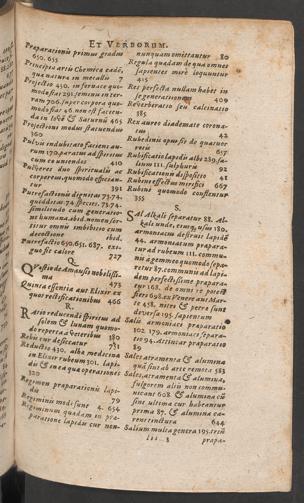 ET VERBORUM.
Præparationis primus gradus
650. 655
Principia artis Chemicæ eadē,
qua natura in metallis 7
Projectio 430. in fornace quo-
modo fiat 291. semiuncia in ter-
ram 706. super corpora quo-
modo fiat 46. non est facien-
da in Iove & Saturno 465
Projectionis modus statuendus
360
Pulvis induratore faciens au-
rum 170. paratus ad spiritus
cum eo uniendos 410
Pulveres duo spiritualis ac
corporeus quomodo efficiun-
tur 391
Putrefactionis dignitas 73. 74.
quidditas 74. species 73. 74.
similitudo cum generatio-
ne humana ibid.
omnium cum
decoctione ibid.
Putrefactio 650. 651. 687. ex-
guo fit calore 727
Q.
Quæstio de Amausis nobilissi-
ma 473
Quinta essentia aut Elixir ex
quo rectificationibus 466
R.
Ratio reducendi spiritus ad
solem & lunam quomo-
do reperta à veteribus 180
Rebis cur desiccatur 731
Reductio 430. alba medicina
in Elixir rubeum 301. lapi-
dis & in ea qua operationes
320
Regimen præparationis lapi-
dis 79
Regiminis modi sunt 4. 654
Regiminum quadam in præ-
paratione lapidis cur non-
nunquam omittantur 80
Regula quadam de qua omnes
sapientes mirè loquuntur
415
Res perfecta nullam habet in
se generationem 409
Reverberatio seu calcinatio
385
Rex aureo diademate corona-
tus 42
Rubedinis opus fit de quatuor-
657
Rubificatio lapidis albi 239. sa-
lium 111. sulphuris 92
Rubificationis dispositio 41
Rubini effectus mirifici 667
Rubini quomodo constentur
355
S.
Sal Alkali separatur 88. Al-
kali unde, ejusq; usus 180.
armoniacum desiderat lapidē
44. armoniacum præpara-
tur ad rubeum 111. commu-
nis à gemmeo quomodo sepa-
retur 87. communi ad lapi-
dem perfectissimè præpara-
tur 168. de omni re
fieri 698. ex Venere aut Mar-
te 458. nitri & petræ sunt
diversa 195. sapientum
Salis armoniaci præparatio
102. 179. armoniaci separa-
tio 94. Atticus præparatio
180
Sales, atramenta & alumina
quæ sint ab arte remota 583
Sales, atramenta & alumina,
fulgorem aliis non commu-
nicant 608. & alumina cū
sint ultima cur habeantur
prima 87. & alumina ca-
rent tinctura 644
Salium multa genera 195. tem
Iii 8 præpa-